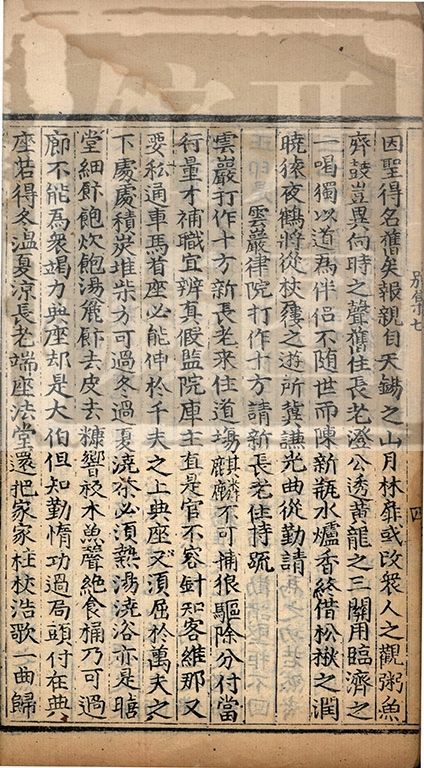 因聖得名舊矣報親自天錫之山月林辭或改衆人之觀粥魚
齊鼓豈異向時之聲舊住長老澄公透黄龍之三關用臨濟之
一喝獨以道為伴侣不随世而陳新瓶水爐香終借松楸之潤
曉猿夜鶴將從杖屨之遊所冀謙光曲從勤請
雲巖律院打作十方請新長老住持疏
雲巖打作十方新長老来住道場麒麟不可捕狼驅除分付當
行量才補職宜辨真假監院庫主直是官不容針知客維那又
要私通車馬首座必能伸於千夫之上典座又須屈於萬夫之
下處處積炭堆柴方可過冬過夏澆茶必須熱湯澆浴亦是暗
堂細飰飽炊飽湯麄飰去皮去糠響板木魚聲絶食桶乃可過
廊不能為衆竭力典座却是大伯但知勤惰功過局頭付在典
座若得冬温夏凉長老端座法堂還把家家柱杖浩歌一曲歸
别集七
四